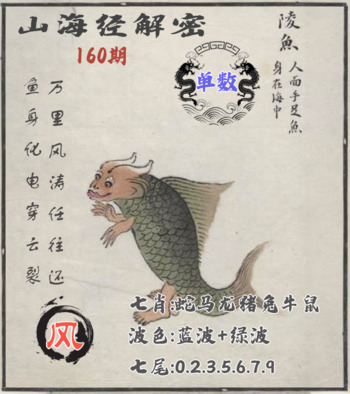 山海经解密
160期
单数
陵魚
人面手足魚
身在海中
万里风涛任往还
鱼身化电穿云裂
风
七肖:蛇马龙猪兔牛鼠
波色:蓝波+绿波
七尾:0.2.3.5.6.7.9